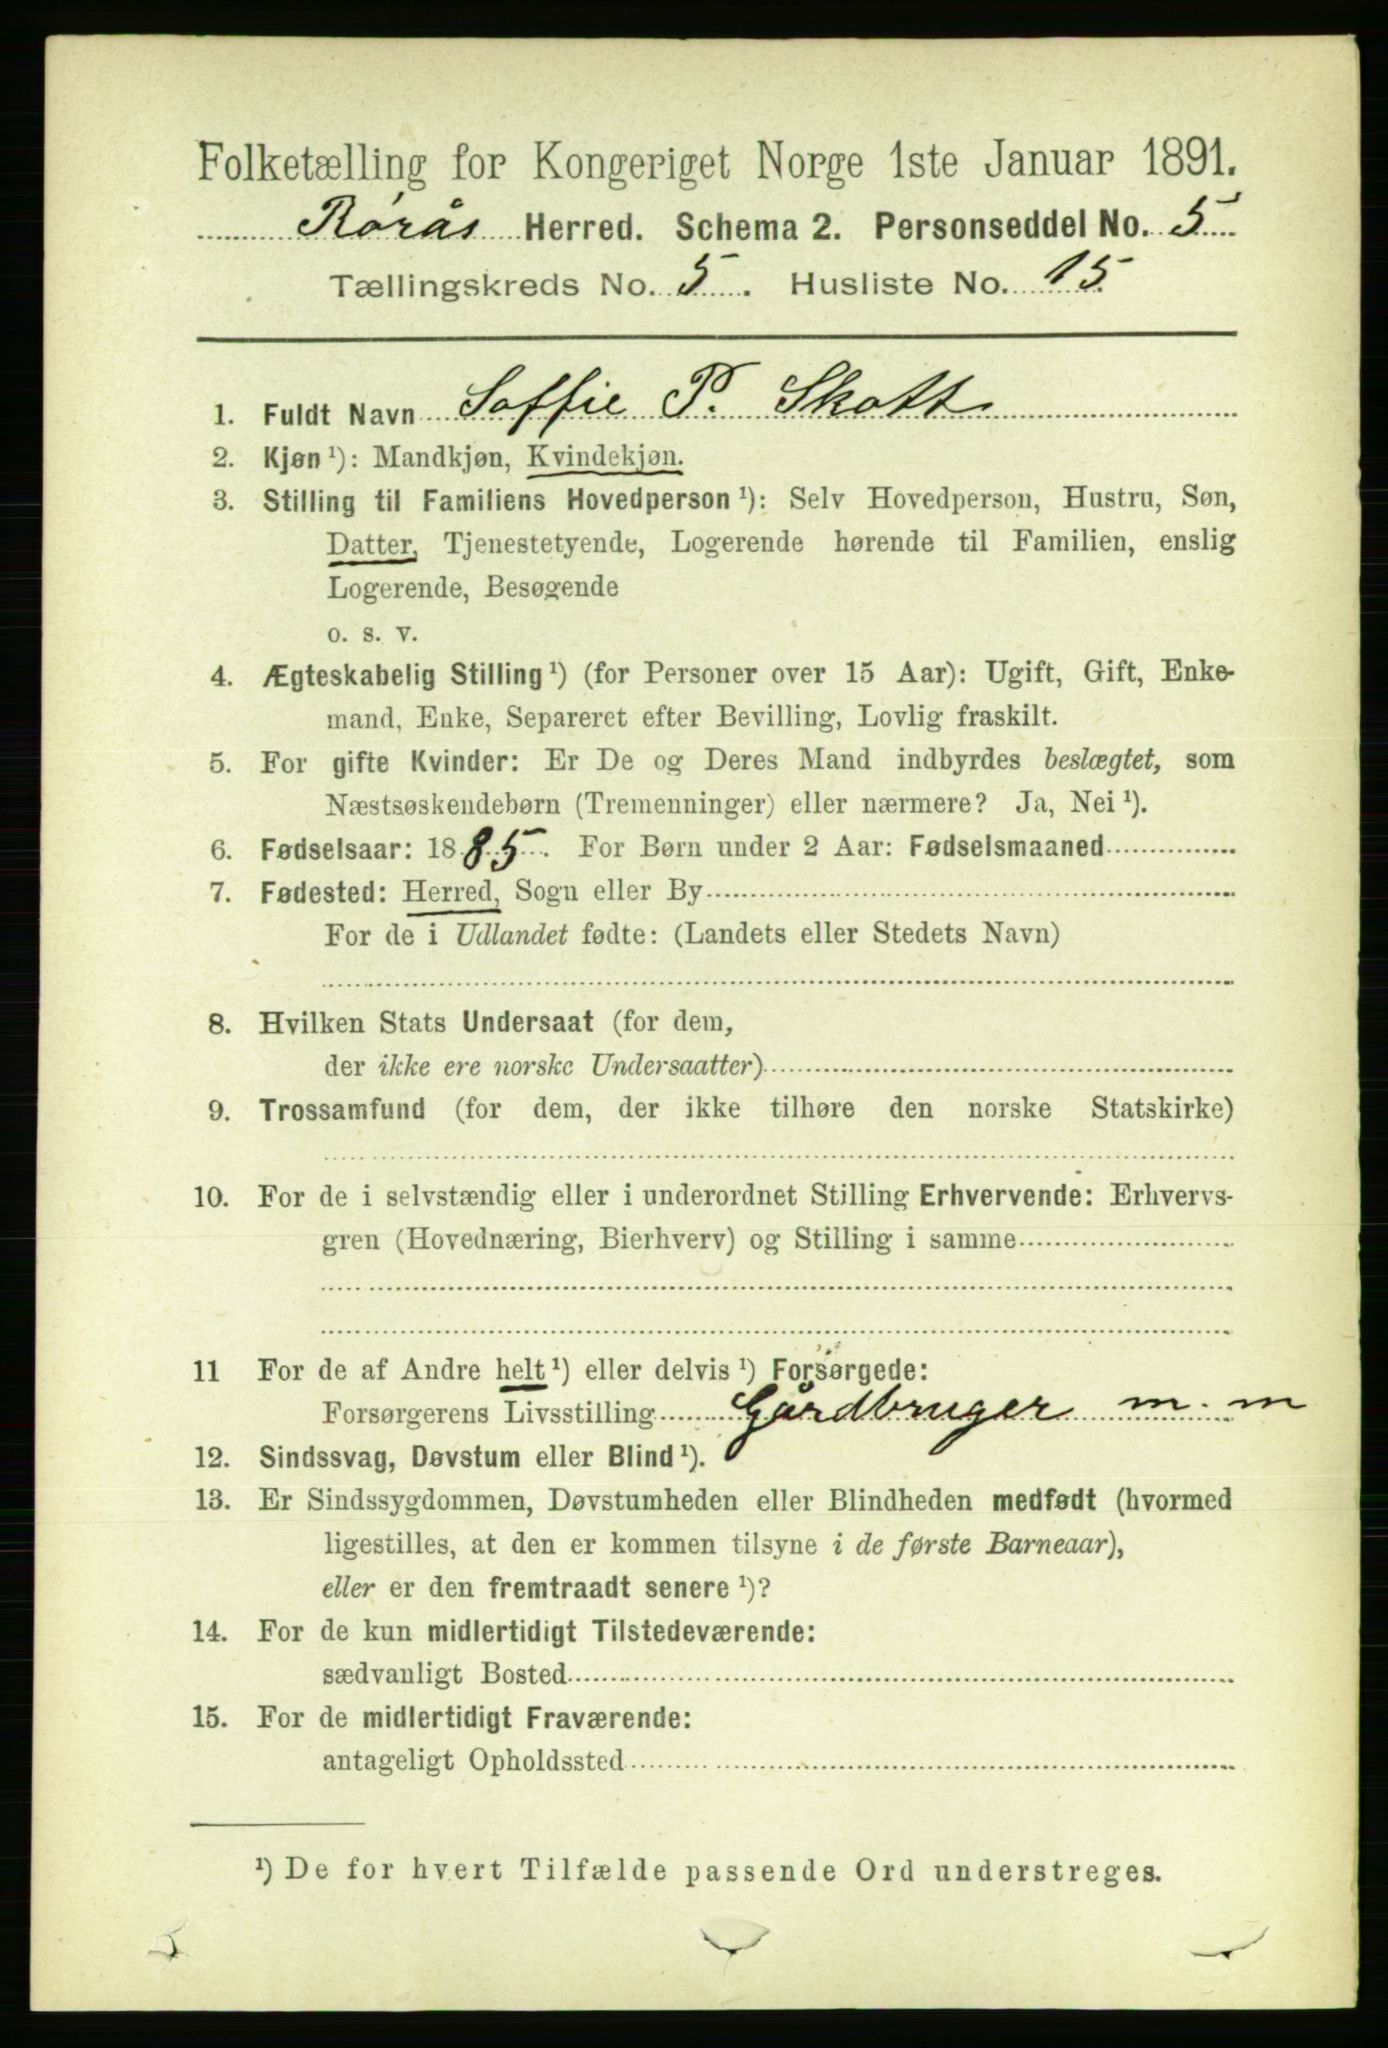 Folketælling for Kongeriget Norge 1ste Januar 1891.
Rørås Herred. Schema 2. Personseddel No. 5
Tællingskreds No. 5. Husliste No. 15
1. Fuldt Navn Soffie P. Skott
2. Kjøn ¹): Mandkjøn, Kvindekjøn.
3. Stilling til Familiens Hovedperson ¹): Selv Hovedperson, Hustru, Søn,
Datter, Tjenestetyende, Logerende hørende til Familien, enslig
Logerende, Besøgende
o. s. v.
4. Ægteskabelig Stilling ¹) (for Personer over 15 Aar): Ugift, Gift, Enke-
mand, Enke, Separeret efter Bevilling, Lovlig fraskilt.
5. For gifte Kvinder: Er De og Deres Mand indbyrdes beslægtet, som
Næstsøskendebørn (Tremenninger) eller nærmere? Ja, Nei ¹).
6. Fødselsaar: 1885. For Børn under 2 Aar: Fødselsmaaned
7. Fødested: Herred, Sogn eller By
For de i Udlandet fødte: (Landets eller Stedets Navn)
8. Hvilken Stats Undersaat (for dem,
der ikke ere norske Undersaatter)
9. Trossamfund (for dem, der ikke tilhøre den norske Statskirke)
10. For de i selvstændig eller i underordnet Stilling Erhvervende: Erhvervs-
gren (Hovednæring, Bierhverv) og Stilling i samme
11 For de af Andre helt ¹) eller delvis ¹) Forsørgede:
Forsørgerens Livsstilling Gårdbruger m. m
12. Sindssvag, Døvstum eller Blind ¹).
13. Er Sindssygdommen, Døvstumheden eller Blindheden medfødt (hvormed
ligestilles, at den er kommen tilsyne i de første Barneaar),
eller er den fremtraadt senere ¹)?
14. For de kun midlertidigt Tilstedeværende:
sædvanligt Bosted
15. For de midlertidigt Fraværende:
antageligt Opholdssted
¹) De for hvert Tilfælde passende Ord understreges.